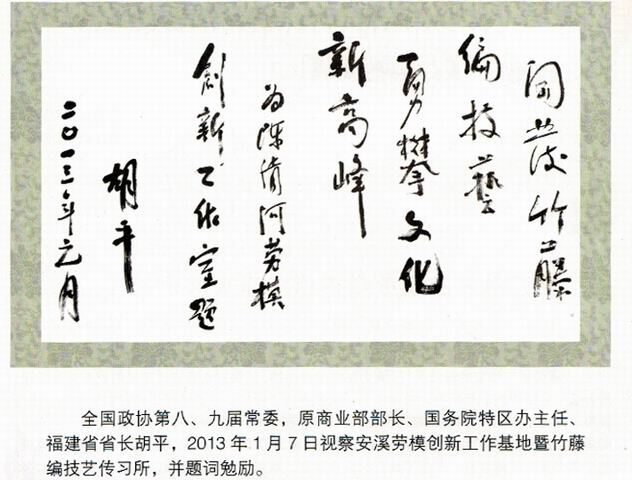 開發竹藤
編技藝
勇攀文化
新高峰
为陈清河劳模
創新工作室题
胡平
二〇一三年元月
全国政协第八、九届常委，原商业部部长、国务院特区办主任、
福建省省长胡平，2013年1月7日视察安溪劳模创新工作基地暨竹藤
编技艺传习所，并题词勉励。